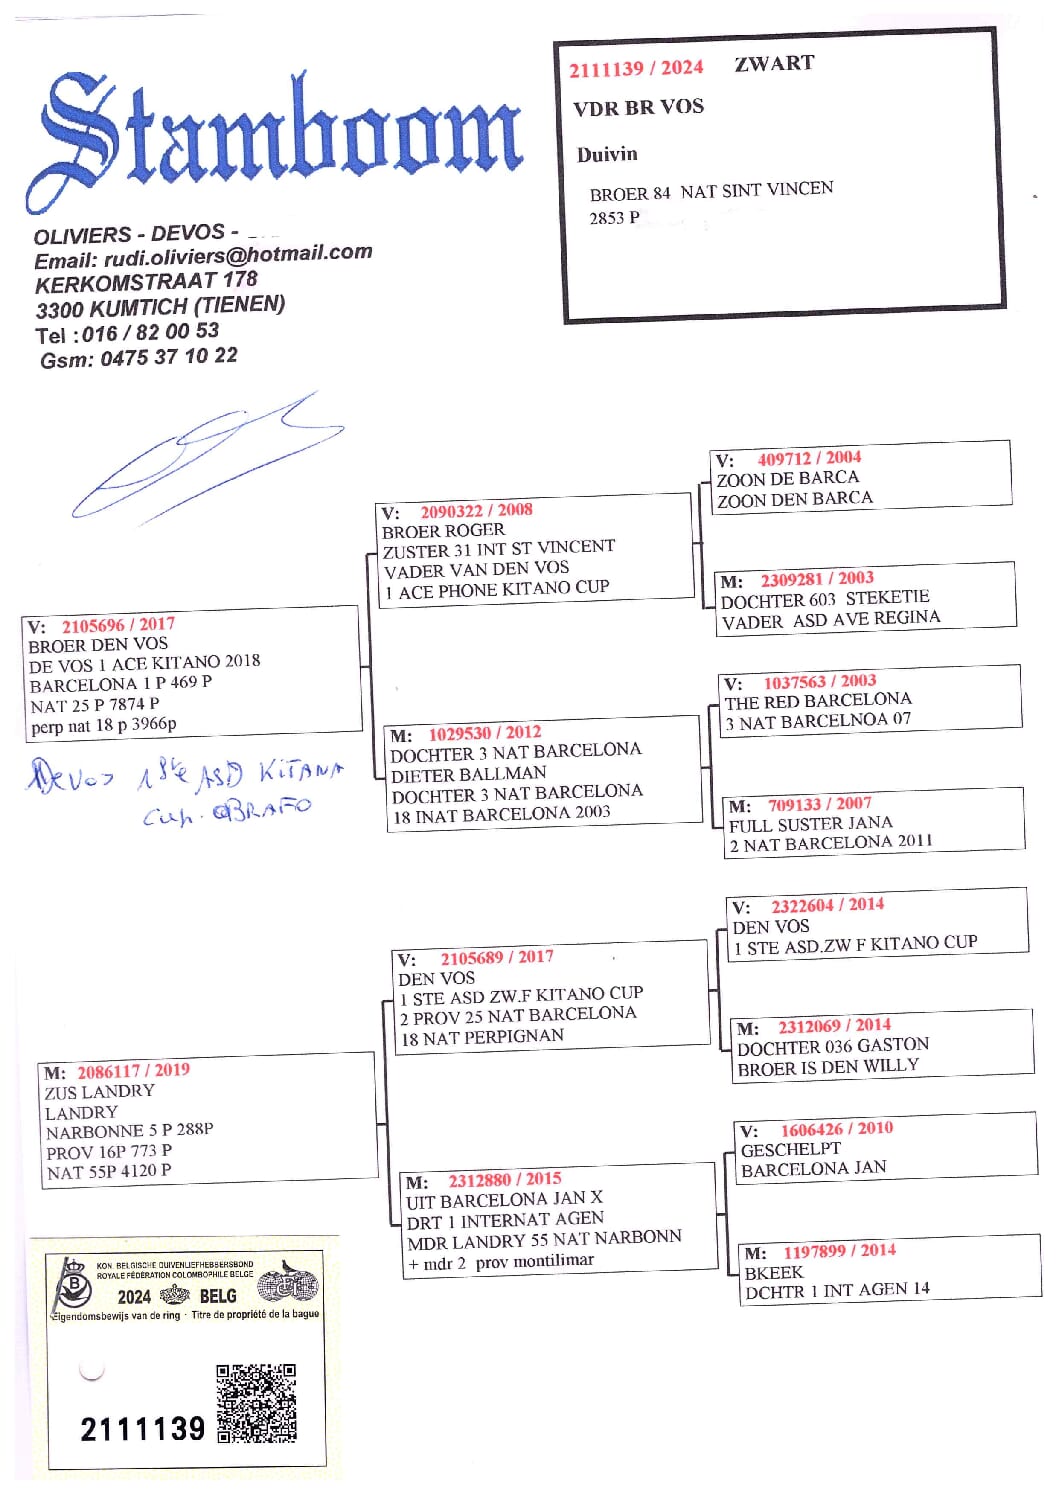 Stamboom
OLIVIERS - DEVOS -
Email: rudi.oliviers@hotmail.com
KERKOMSTRAAT 178
3300 KUMTICH (TIENEN)
Tel :016 / 82 00 53
Gsm: 0475 37 10 22
2111139 / 2024 ZWART
VDR BR VOS
Duivin
BROER 84 NAT SINT VINCEN
2853 P
V: 2105696 / 2017
BROER DEN VOS
DE VOS 1 ACE KITANO 2018
BARCELONA 1 P 469 P
NAT 25 P 7874 P
perp nat 18 p 3966p
Devos 1ste ASD KITANA
Cup. BRAFO
V: 2090322 / 2008
BROER ROGER
ZUSTER 31 INT ST VINCENT
VADER VAN DEN VOS
1 ACE PHONE KITANO CUP
M: 1029530 / 2012
DOCHTER 3 NAT BARCELONA
DIETER BALLMAN
DOCHTER 3 NAT BARCELONA
18 INAT BARCELONA 2003
V: 409712 / 2004
ZOON DE BARCA
ZOON DEN BARCA
M: 2309281 / 2003
DOCHTER 603 STEKETIE
VADER ASD AVE REGINA
V: 1037563 / 2003
THE RED BARCELONA
3 NAT BARCELNOA 07
M: 709133 / 2007
FULL SUSTER JANA
2 NAT BARCELONA 2011
M: 2086117 / 2019
ZUS LANDRY
LANDRY
NARBONNE 5 P 288P
PROV 16P 773 P
NAT 55P 4120 P
V: 2105689 / 2017
DEN VOS
1 STE ASD ZW.F KITANO CUP
2 PROV 25 NAT BARCELONA
18 NAT PERPIGNAN
M: 2312880 / 2015
UIT BARCELONA JAN X
DRT 1 INTERNAT AGEN
MDR LANDRY 55 NAT NARBONN
+ mdr 2 prov montilimar
V: 2322604 / 2014
DEN VOS
1 STE ASD.ZW F KITANO CUP
M: 2312069 / 2014
DOCHTER 036 GASTON
BROER IS DEN WILLY
V: 1606426 / 2010
GESCHELPT
BARCELONA JAN
M: 1197899 / 2014
BKEEK
DCHTR 1 INT AGEN 14
KON. BELGISCHE DUIVENLIEFHEBBERSBOND
ROYALE FÉDÉRATION COLOMBOPHILE BELGE
B
2024 BELG
Eigendomsbewijs van de ring - Titre de propriété de la bague
2111139